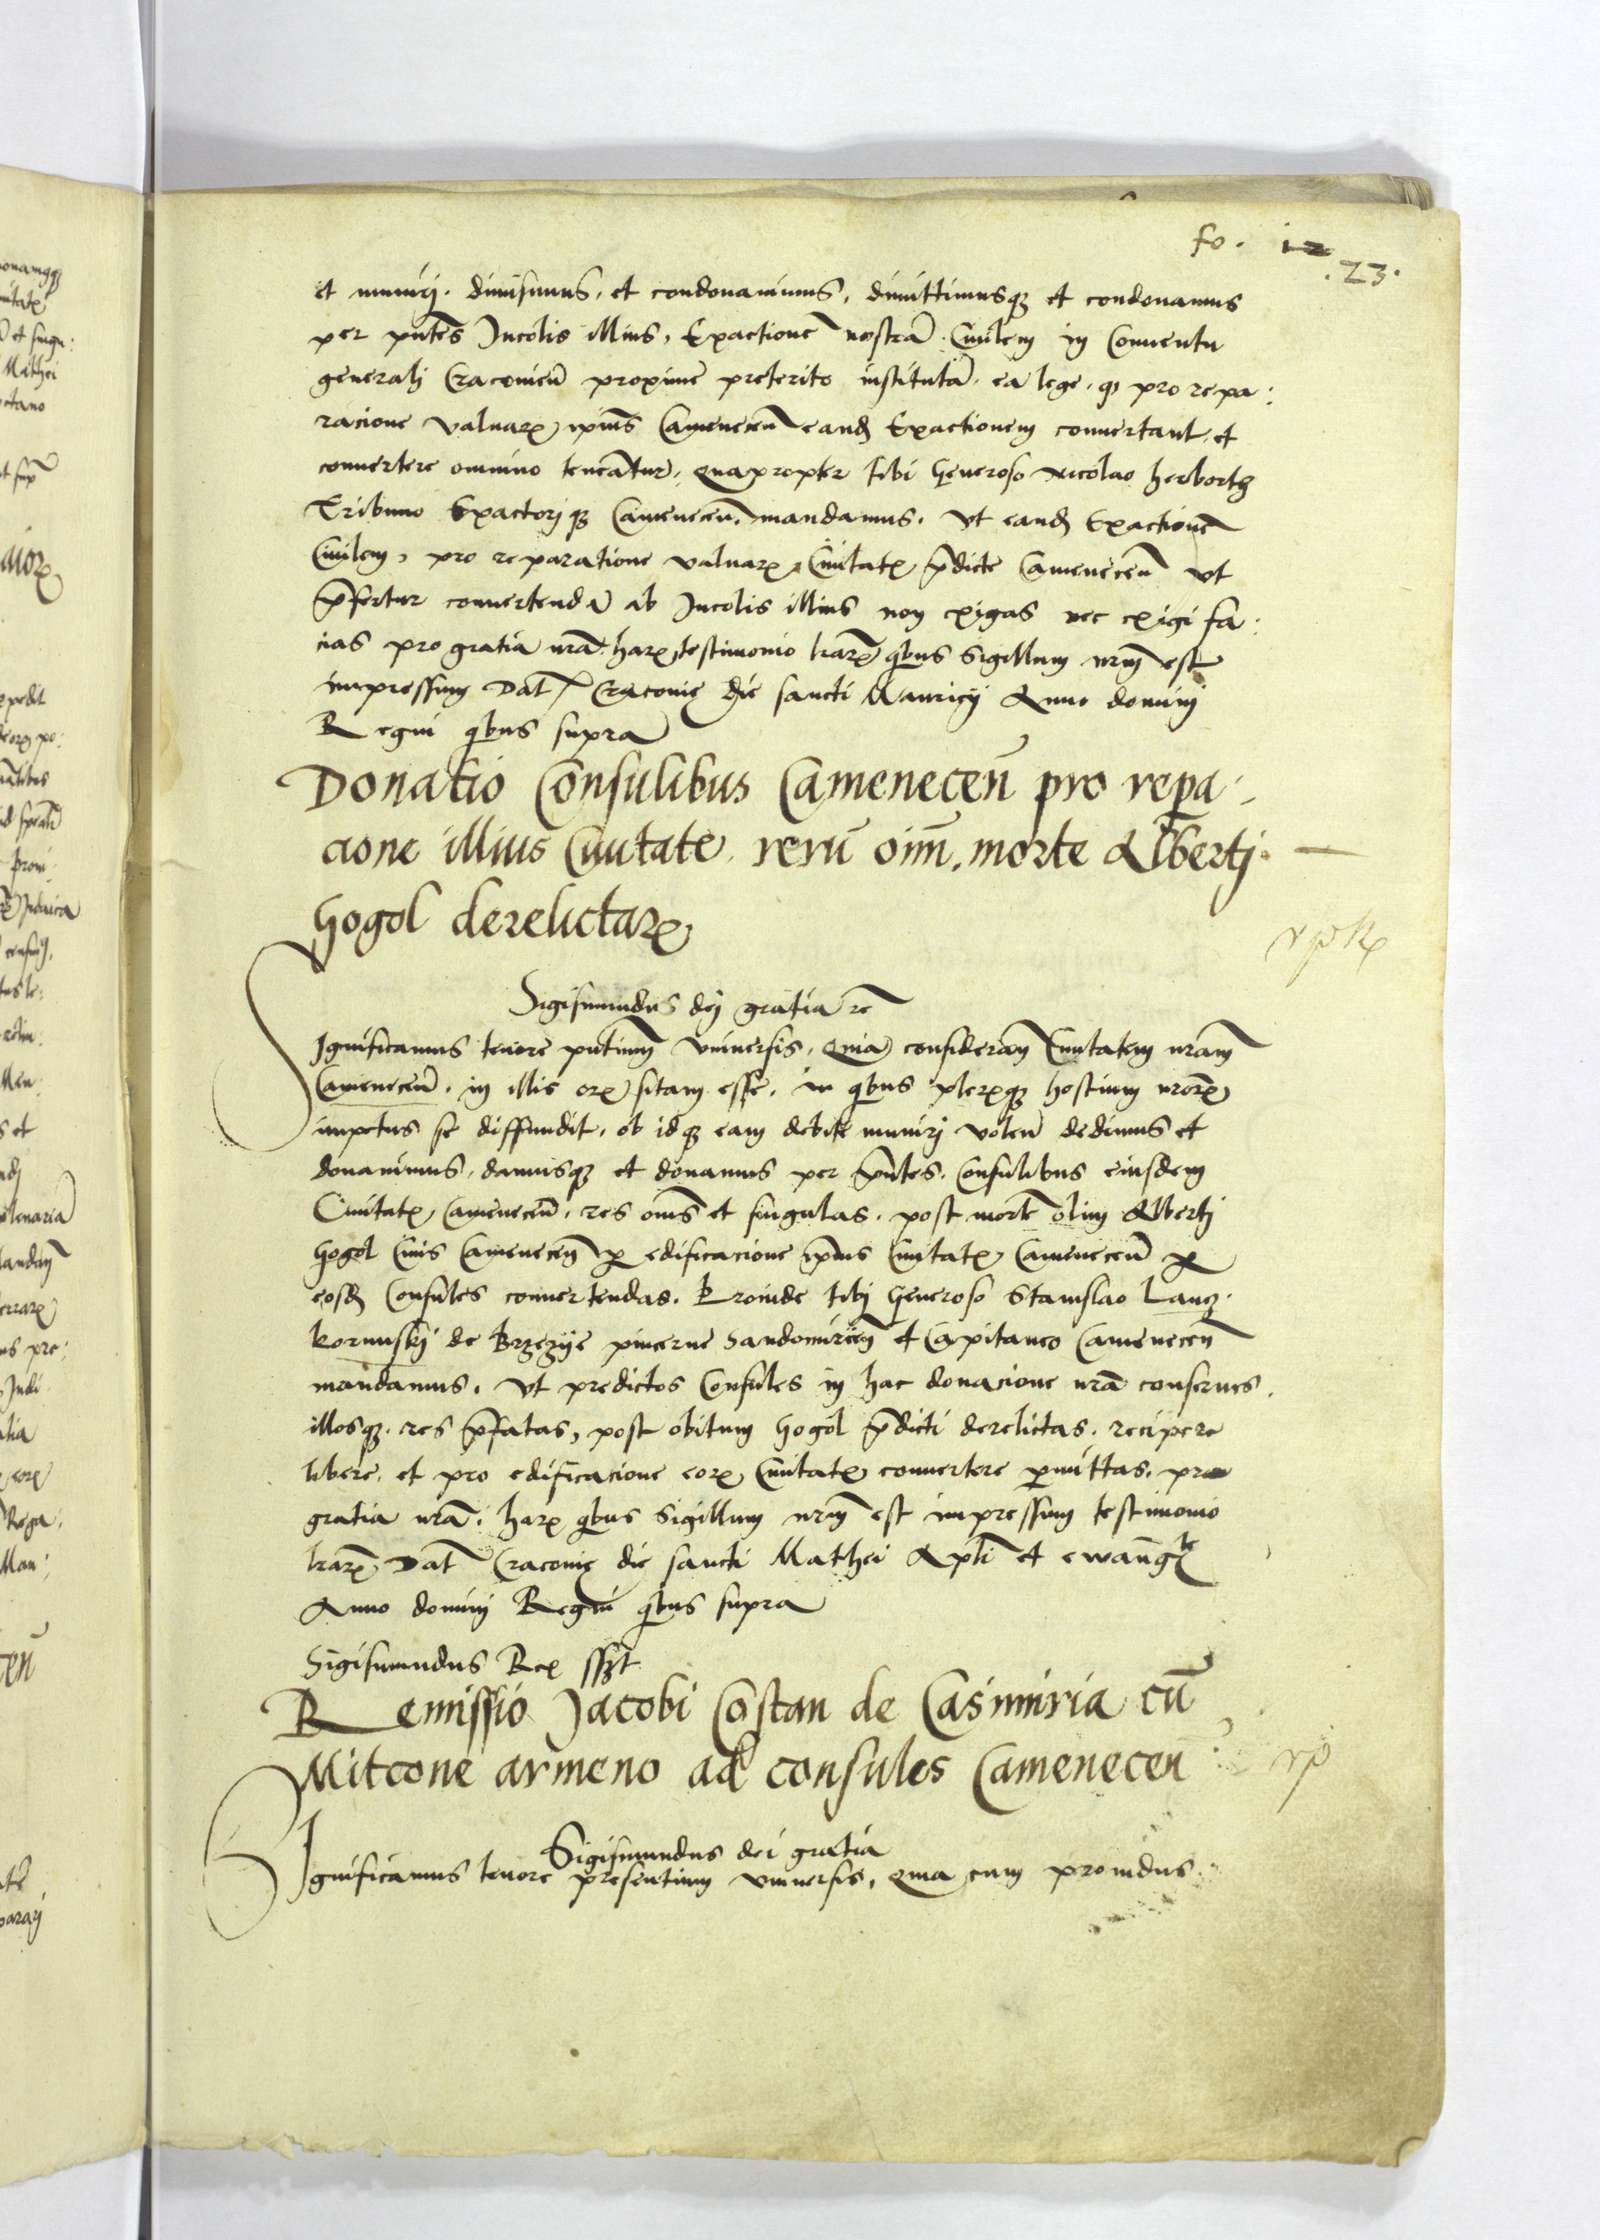 fo. 12
.23.
et muniri. dimisimus, et condonauimus, dimittimusqꝫ et condonamus
per pñtes Incolis illius, Exactionē nostrā Ciuilem in Conuentu
generali Cracouieñ proxime preterito institutā. ea lege, qꝫ pro repa:
racione valuaꝝ ipius Cameneceñ eandꝫ Exactionem conuertant, et
conuertere omnino teneātur. Quapropter tibi Generoso Nicolao herborth
Tribuno Exactoriqꝫ Cameneceñ. mandamus. vt eandꝫ Exactionē
Ciuilem, pro reparatione valuaꝝ Ciuitatꝭ p̃dicte Cameneceñ vt
p̃fertur conuertendā ab Incolis illius non exigas nec exigi fa:
cias pro gratia nrã. haꝝ testimonio lraꝝ qbus Sigillum nrm̃ est
impressum Dat̃ Cracouie die sancti Mauricij Anno domini
Regni qbus supra
Donatio Consulibus Cameneceñ pro repa:
cione illius Ciuitatꝭ. rerū oim̃. morte Alberti
hogol derelictaꝝ
Sigismundus dei gratia rē
Significamus tenore pñtium̃ vniuersis, Quia considerañ Ciuitatem nram̃
Cameneceñ. in illis oris sitam esse, in qbus pleruqꝫ hostium nroꝝ
impetus se diffundit, ob idqꝫ eam debite muniri voleñ dedimus et
donauimus, damusqꝫ et donamus per p̃ntes. Consulibus eiusdem
Ciuitatꝭ Cameneceñ. res om̃s et singulas, post mortē olim Alberti
hogol Ciuis Cameneceñ ꝓ edificacione ip̃ius Ciuitatꝭ Cameneceñ ꝑ
eosdꝫ Consules conuertendas. Proinde tibi Generoso Stanislao Lancz:
korunskij de Brzezije pincerne Sandomirieñ et Capitaneo Cameneceñ
mandamus, vt predictos Consules in hac donacione nrã conserues,
illosqꝫ res p̃fatas, post obitum hogol p̃dicti derelictas, recipere
libere, et pro edificacione eoꝝ Ciuitatꝭ conuertere ꝑmittas, pro
gratia nrã. haꝝ qbus Sigillum nrm̃ est impressum testimonio
lraꝝ Dat̃ Cracouie die sancti Mathei Apli et ewang̃le
Anno domini Regni qbus supra
Sigismundus Rex sszt
Remissio Jacobi Costan de Casimiria cū
Mitcone armeno ad consules Cameneceñ
Sigismundus dei gratia
Significamus tenore presentium vniuersis, Quia cum prouidus